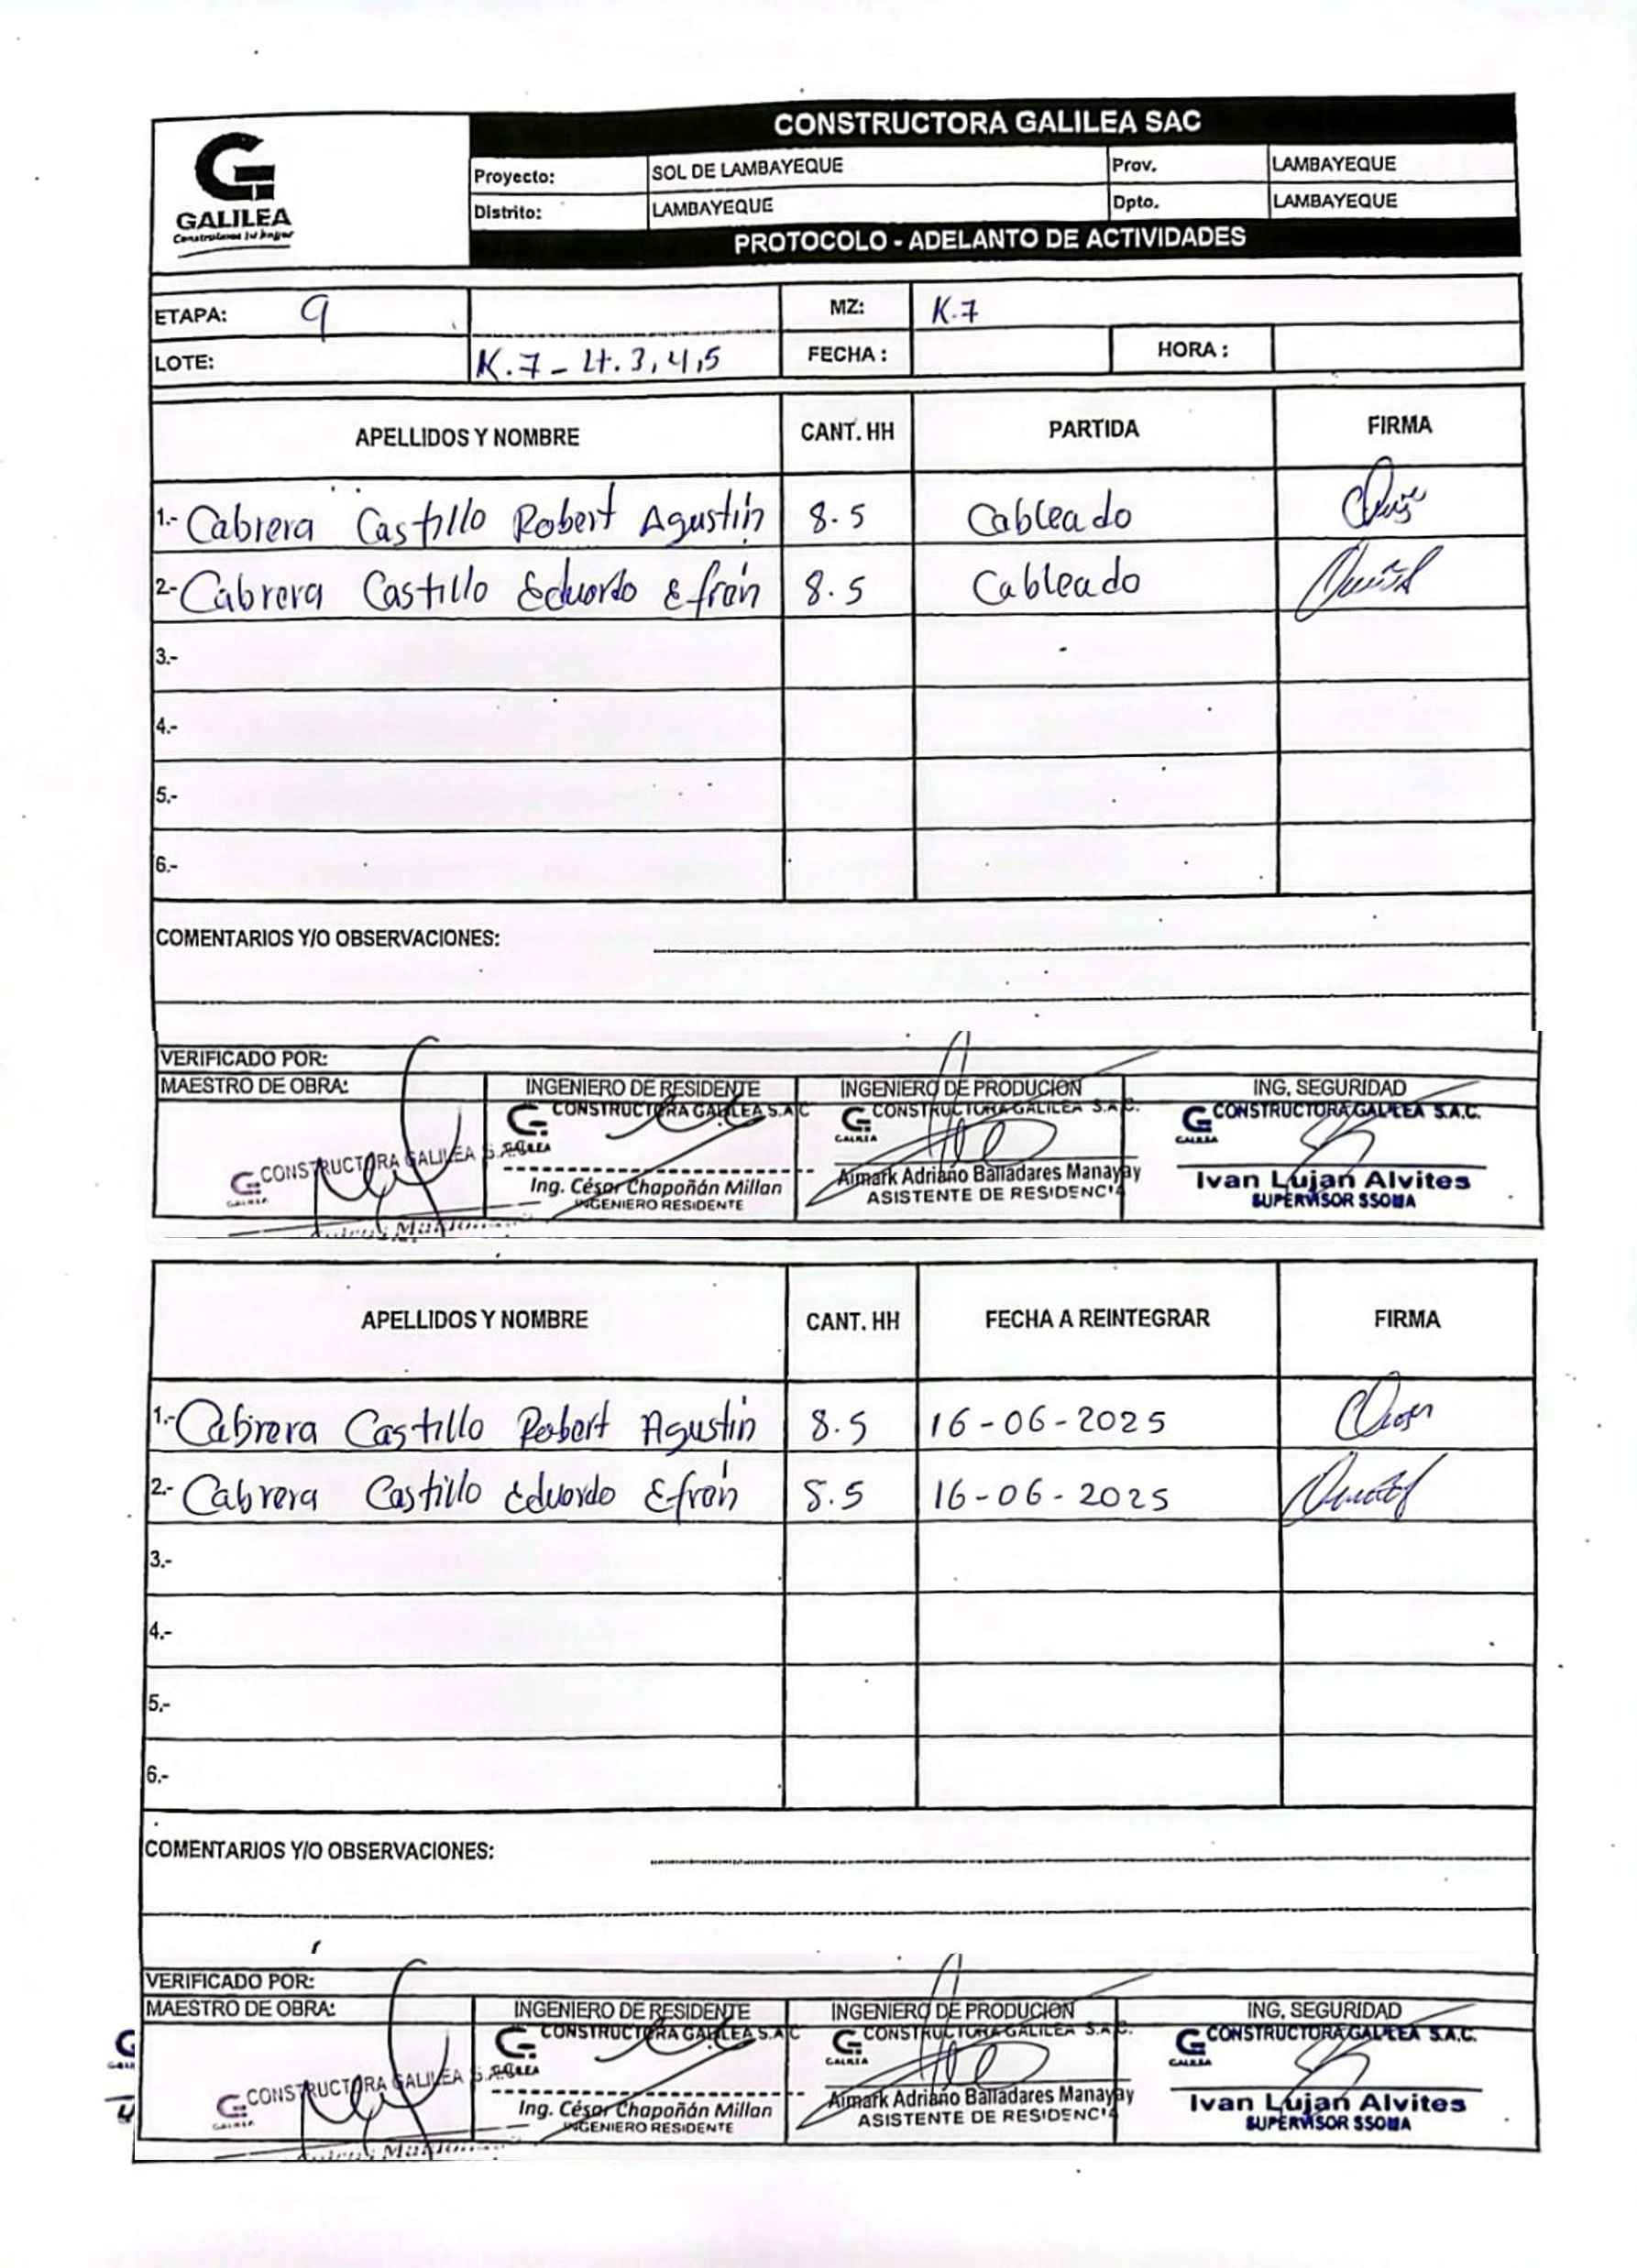 CONSTRUCTORA GALILEA SAC
GALILEA
Construimos tu hogar
Proyecto: SOL DE LAMBAYEQUE Prov. LAMBAYEQUE
Distrito: LAMBAYEQUE Dpto. LAMBAYEQUE
PROTOCOLO - ADELANTO DE ACTIVIDADES
ETAPA: 9 MZ: K.7
LOTE: K.7 - Lt. 3, 4, 5 FECHA : HORA :
APELLIDOS Y NOMBRE CANT. HH PARTIDA FIRMA
1.- Cabrera Castillo Robert Agustín 8.5 Cableado
2.- Cabrera Castillo Eduardo Efrán 8.5 Cableado
3.-
4.-
5.-
6.-
COMENTARIOS Y/O OBSERVACIONES:
VERIFICADO POR:
MAESTRO DE OBRA: INGENIERO DE RESIDENTE INGENIERO DE PRODUCION ING. SEGURIDAD
CONSTRUCTORA GALILEA S.A.C CONSTRUCTORA GALILEA S.A.C. CONSTRUCTORA GALILEA S.A.C.
GALILEA GALILEA GALILEA
CONSTRUCTORA GALILEA S.A.C.
GALILEA
Ing. César Chapoñán Millan Aimark Adriano Balladares Manayay Ivan Lujan Alvites
INGENIERO RESIDENTE ASISTENTE DE RESIDENCIA SUPERVISOR SSOMA
APELLIDOS Y NOMBRE CANT. HH FECHA A REINTEGRAR FIRMA
1.- Cabrera Castillo Robert Agustín 8.5 16-06-2025
2.- Cabrera Castillo Eduardo Efrán 8.5 16-06-2025
3.-
4.-
5.-
6.-
COMENTARIOS Y/O OBSERVACIONES:
VERIFICADO POR:
MAESTRO DE OBRA: INGENIERO DE RESIDENTE INGENIERO DE PRODUCION ING. SEGURIDAD
CONSTRUCTORA GALILEA S.A.C CONSTRUCTORA GALILEA S.A.C. CONSTRUCTORA GALILEA S.A.C.
GALILEA GALILEA GALILEA
CONSTRUCTORA GALILEA S.A.C.
GALILEA
Ing. César Chapoñán Millan Aimark Adriano Balladares Manayay Ivan Lujan Alvites
INGENIERO RESIDENTE ASISTENTE DE RESIDENCIA SUPERVISOR SSOMA